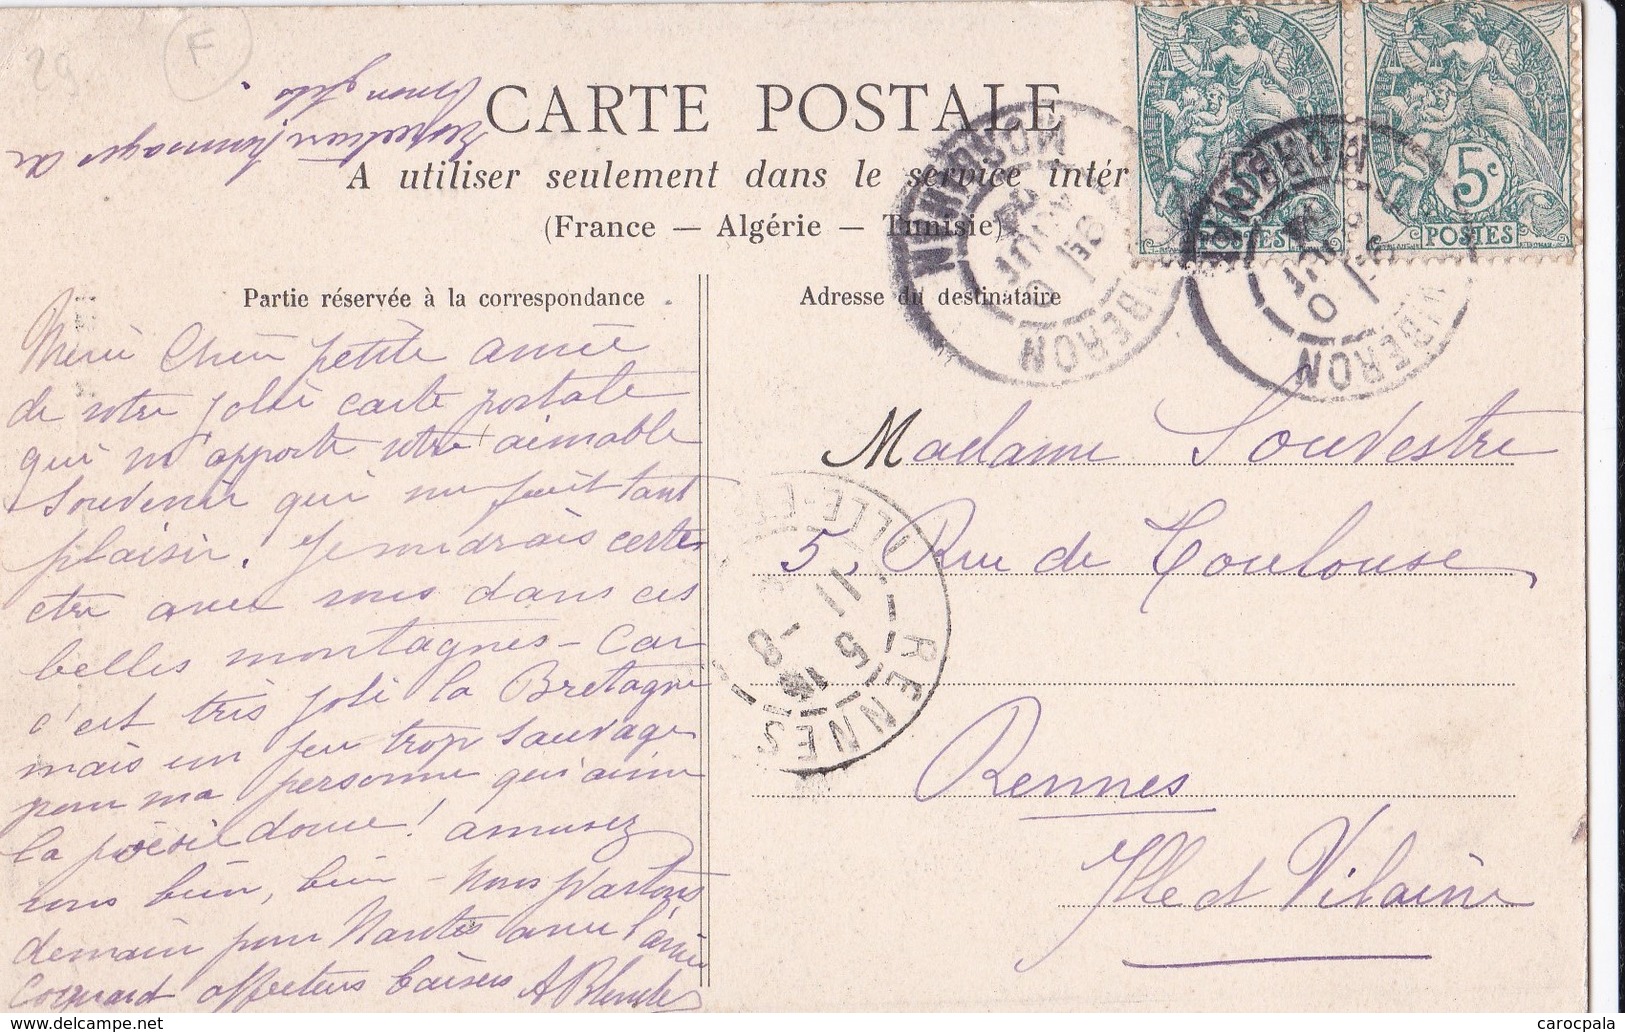 29
F
Respectueux hommages de
mon fils.
CARTE POSTALE
A utiliser seulement dans le service intér
(France — Algérie — Tunisie)
POSTES
5c
POSTES
QUIBERON
MORBIHAN
9E
AOUT
04
QUIBERON
MORBIHAN
Partie réservée à la correspondance
Adresse du destinataire
Merci Chère petite amie
de votre jolie carte postale
qui m'apporte votre aimable
souvenir qui me fait tant
plaisir. Je voudrais certes
être avec vous dans ces
belles montagnes - car
c'est très joli la Bretagne
mais un peu trop sauvage
pour ma personne qui aime
la poésie douce! amusez
vous bien, bien - nous partons
demain pour Nantes avec l'amie
Coignard affectueux baisers A
Madame Souvestre
5, Rue de Toulouse
Rennes
Ille et Vilaine
RENNES
ILLE-ET
11
5
8
carocpala